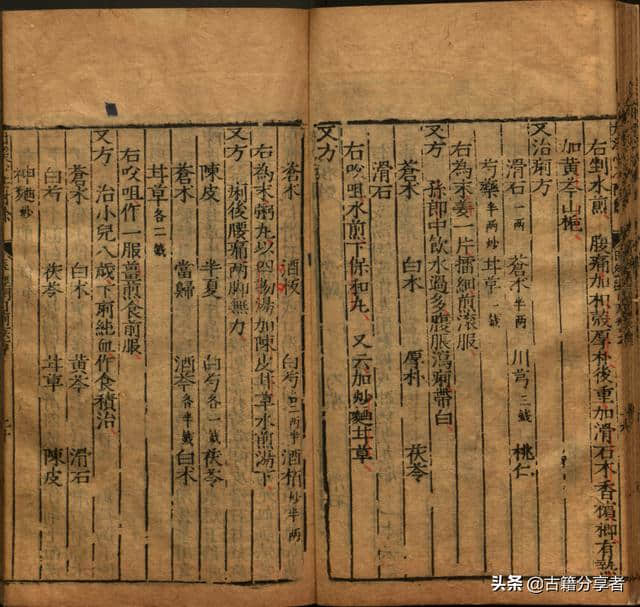 右剉水煎 腰痛加枳殼厚朴後重加滑石木香檳榔有熱
加黃芩山梔
又治痢方
滑石一兩 蒼术半兩 川芎三錢 桃仁
芍藥半兩炒 甘草一錢
右為末姜一片擂細煎滾服
又方 孫郎中飲水過多腹脹瀉痢帶白
蒼术 白术 厚朴 茯苓
滑石
右㕮咀水煎下保和丸 又云加炒麯甘草
又方
蒼术 白芍各二兩半
右為末粥丸以四物湯加陳皮甘草水煎湯下
又方 痢後腰痛兩脚無力
陳皮 半夏 白芍各一錢 茯苓
蒼术 當歸 酒芩各半錢 白术
甘草各二錢
右㕮咀作一服薑煎食前服
又方 治小兒八歲下痢純血作食積治
蒼术 白术 黃芩 滑石
白芍 茯苓 甘草 陳皮
神麯炒
头条 @古籍分享者